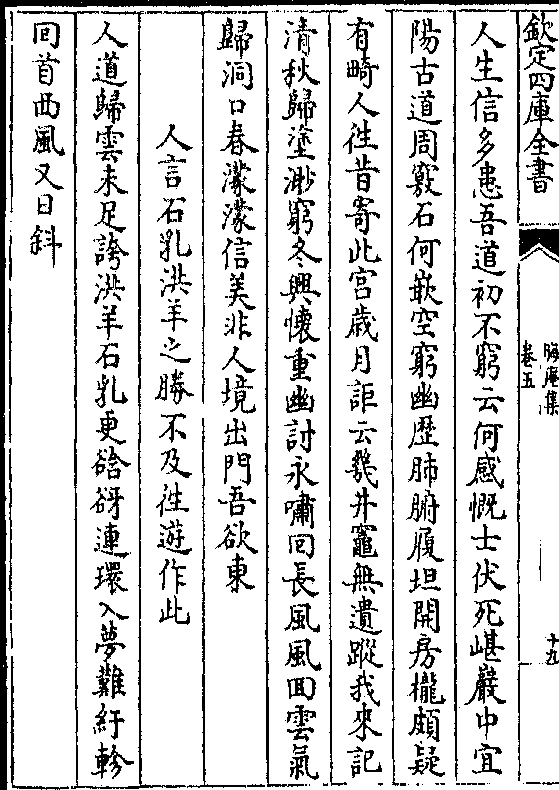 欽定四庫全書
晦庵集
卷五
十九
人生信多患吾道初不窮云何感慨士伏死嵁巖中宜
陽古道周竅石何嵌空窮幽歴肺腑履坦開房櫳頗疑
有畸人往昔寄此宫歳月詎云幾井竈無遺蹤我來記
清秋歸塗渺窮冬興懷重幽討永嘯回長風風回雲氣
歸洞口春濛濛信美非人境出門吾欲東
人言石乳洪羊之勝不及往遊作此
人道歸雲未足誇洪羊石乳更谽谺連環入夢難紆軫
回首西風又日斜